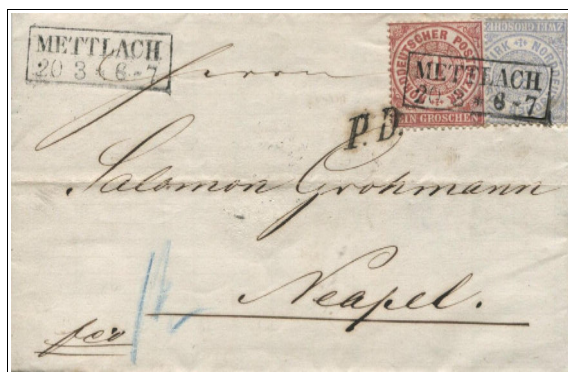 METTLACH
20 3 * 6-7
NORDDEUTSCHER POST
EIN GROSCHEN
ZWEI GROSCHEN
METTLACH
6-7
P. D.
Herrn
Salomon Grohmann
Neapel.
fco